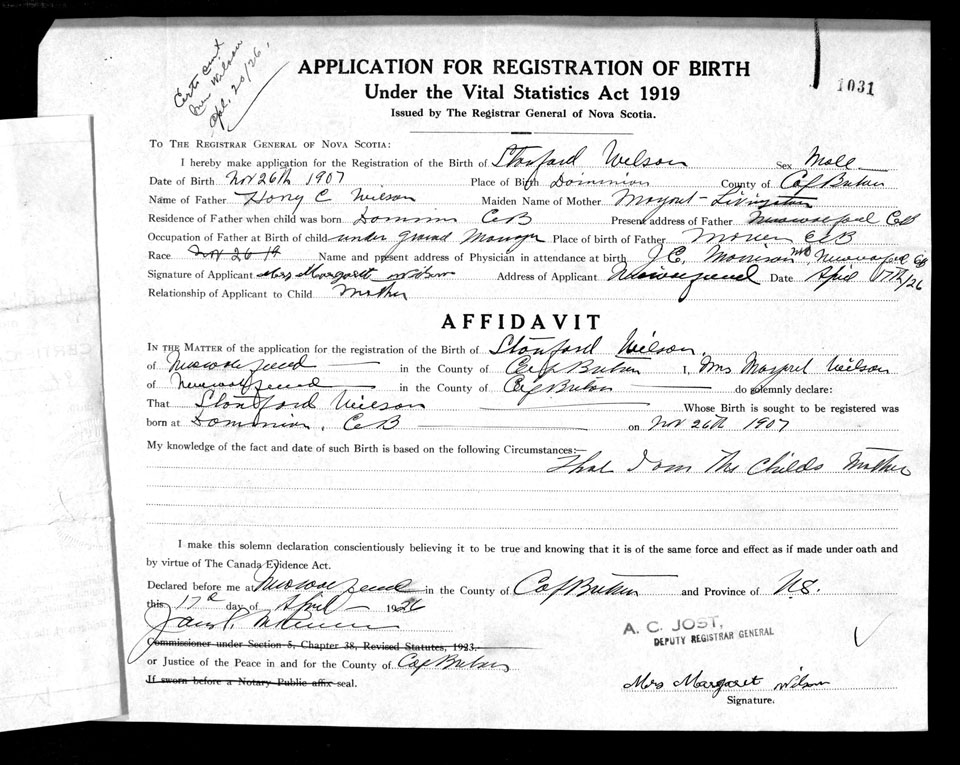 Certi sent
Mrs Wilson
Apl. 20/26.
APPLICATION FOR REGISTRATION OF BIRTH
Under the Vital Statistics Act 1919
Issued by The Registrar General of Nova Scotia.
1031
TO THE REGISTRAR GENERAL OF NOVA SCOTIA:
I hereby make application for the Registration of the Birth of Stanford Wilson Sex Male
Date of Birth Nov 26th 1907 Place of Birth Dominion County of Cap Breton
Name of Father Henry C Wilson Maiden Name of Mother Margret Livingston
Residence of Father when child was born Dominion CB Present address of Father CB
Occupation of Father at Birth of child under ground Manager Place of birth of Father Morien CB
Race Nov 26th Name and present address of Physician in attendance at birth J.C. Morrison MD, CB
Signature of Applicant Mrs Margaret Wilson Address of Applicant Date April 17th/26
Relationship of Applicant to Child Mother
AFFIDAVIT
IN THE MATTER of the application for the registration of the Birth of Stanford Wilson,
of in the County of Cap Breton I, Mrs Margret Wilson
of in the County of Cap Breton do solemnly declare:
That Standford Wilson Whose Birth is sought to be registered was
born at Dominion, CB on Nov 26th 1907
My knowledge of the fact and date of such Birth is based on the following Circumstances:—
That I am The Childs Mother
I make this solemn declaration conscientiously believing it to be true and knowing that it is of the same force and effect as if made under oath and
by virtue of The Canada Evidence Act.
Declared before me at in the County of Cap Breton and Province of N.S.
this 17th day of April 1926
Commissioner under Section 5, Chapter 38, Revised Statutes, 1923.
or Justice of the Peace in and for the County of Cap Breton
If sworn before a Notary Public affix seal.
A. C. JOST,
DEPUTY REGISTRAR GENERAL
Mrs Margaret Wilson
Signature.